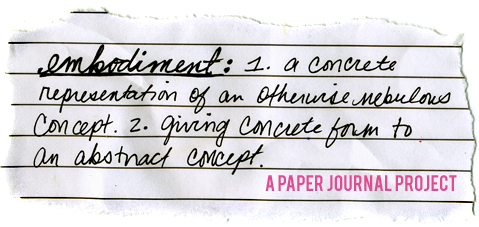 embodiment: 1. a concrete
representation of an otherwise nebulous
concept. 2. giving concrete form to
an abstract concept.
A PAPER JOURNAL PROJECT